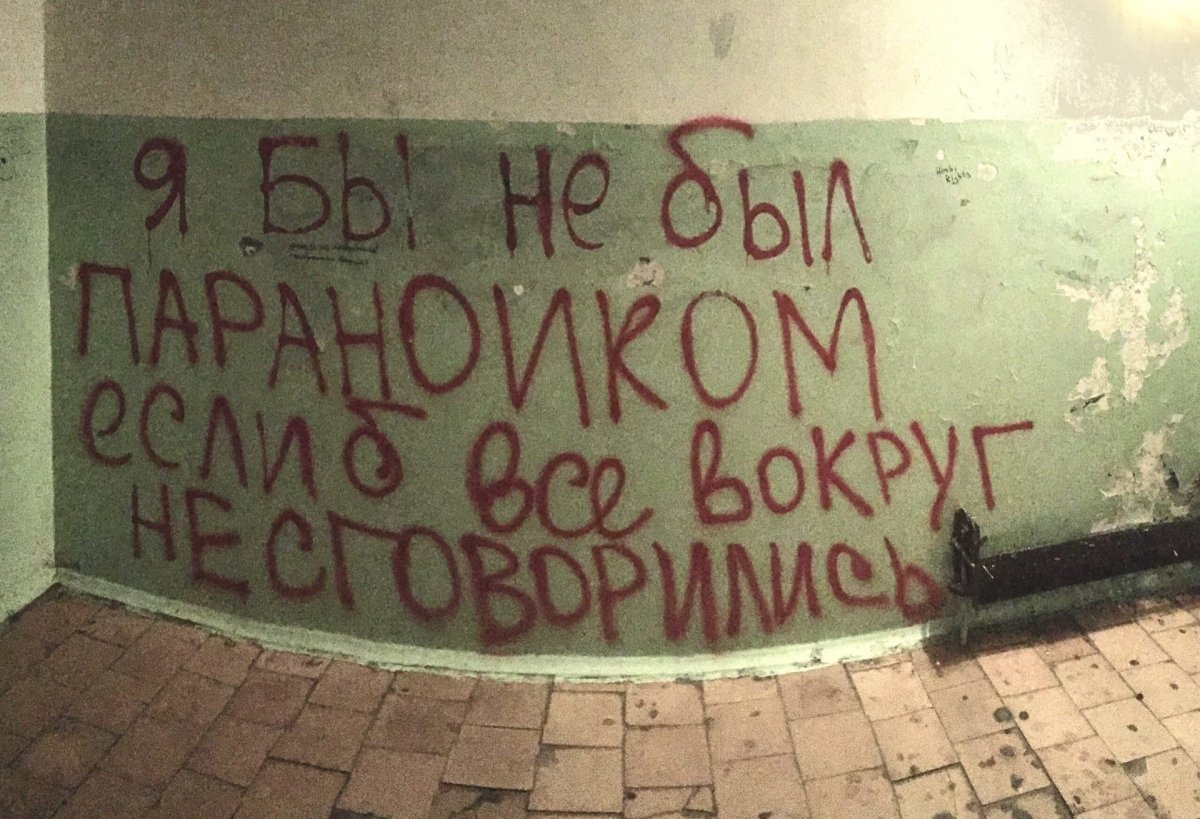 Я БЫ не был
ПАРАНОИКОМ
если б все вокруг
НЕ СГОВОРИЛИСЬ